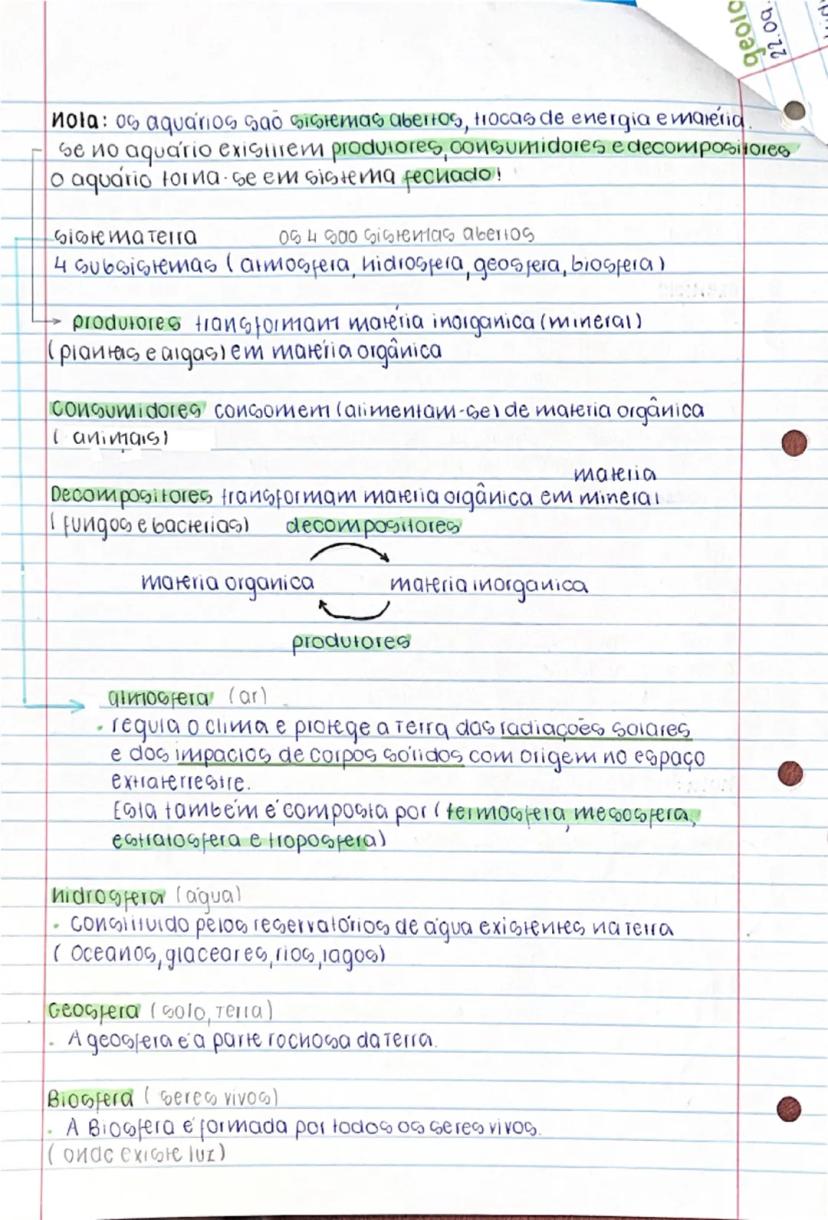 geolo
22.09.
nota: os aquários são sistemas abertos, trocas de energia e matéria.
se no aquário existirem produtores, consumidores e decompositores
o aquário torna-se em sistema fechado!
sistema terra os 4 são sistemas abertos
4 subsistemas (atmosfera, hidrosfera, geosfera, biosfera)
produtores transformam matéria inorganica (mineral)
(plantas e algas) em matéria orgânica
consumidores consomem (alimentam-se) de materia orgânica
(animais)
materia
Decompositores transformam materia orgânica em mineral
(fungos e bacterias) decompositores
materia organica materia inorganica
produtores
atmosfera (ar)
• regula o clima e protege a terra das radiações solares
e dos impactos de corpos sólidos com origem no espaço
extraterrestre.
Esta também é composta por (termosfera, mesosfera,
estratosfera e troposfera)
hidrosfera (água)
• constituido pelos reservatórios de água existentes na terra
(oceanos, glaceares, rios, lagos)
Geosfera (solo, terra)
. A geosfera é a parte rochosa da terra.
Biosfera (seres vivos)
. A Biosfera é formada por todos os seres vivos.
(onde existe luz)